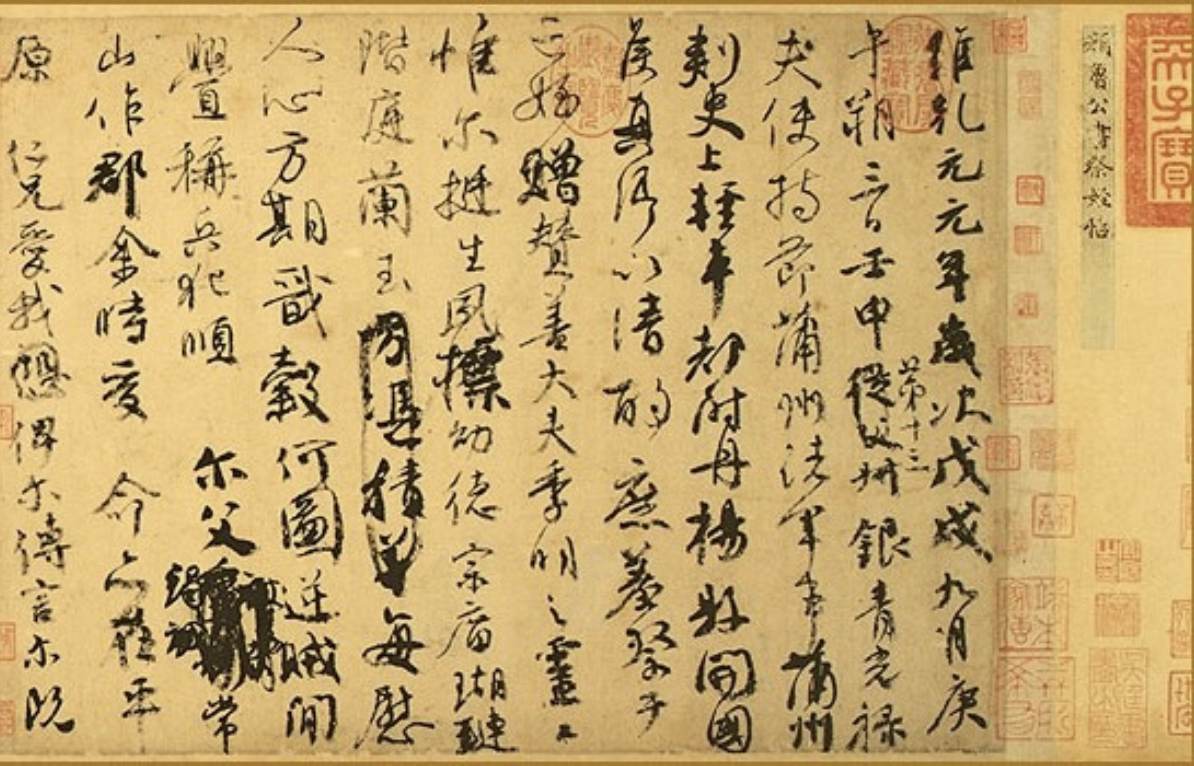 天子寶
顏魯公書祭姪帖
維乾元元年歲次戊戌九月庚
午朔三日壬申第十三從父叔銀青光祿
夫使持節蒲州諸軍事蒲州
刺史上輕車都尉丹楊縣開國
侯真卿以清酌庶羞祭于
亡姪贈贊善大夫季明之靈曰
惟尔挺生夙標幼德宗廟瑚璉
階庭蘭玉方憑積善每慰
人心方期戩穀何圖逆賊間
釁稱兵犯順尔父竭誠常
山作郡余時受命亦在平
原仁兄愛我俾尔傳言尔既